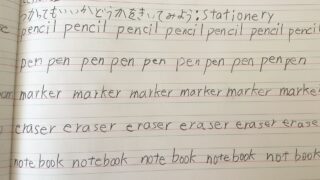 つかってもいいかどうかをきいてみよう:Stationery
pencil pencil pencil pencil pencil pencil pencil
pen pen pen pen pen pen pen pen pen
marker marker marker marker marker marke
eraser eraser eraser eraser eraser erase
notebook notebook note book notebook not book